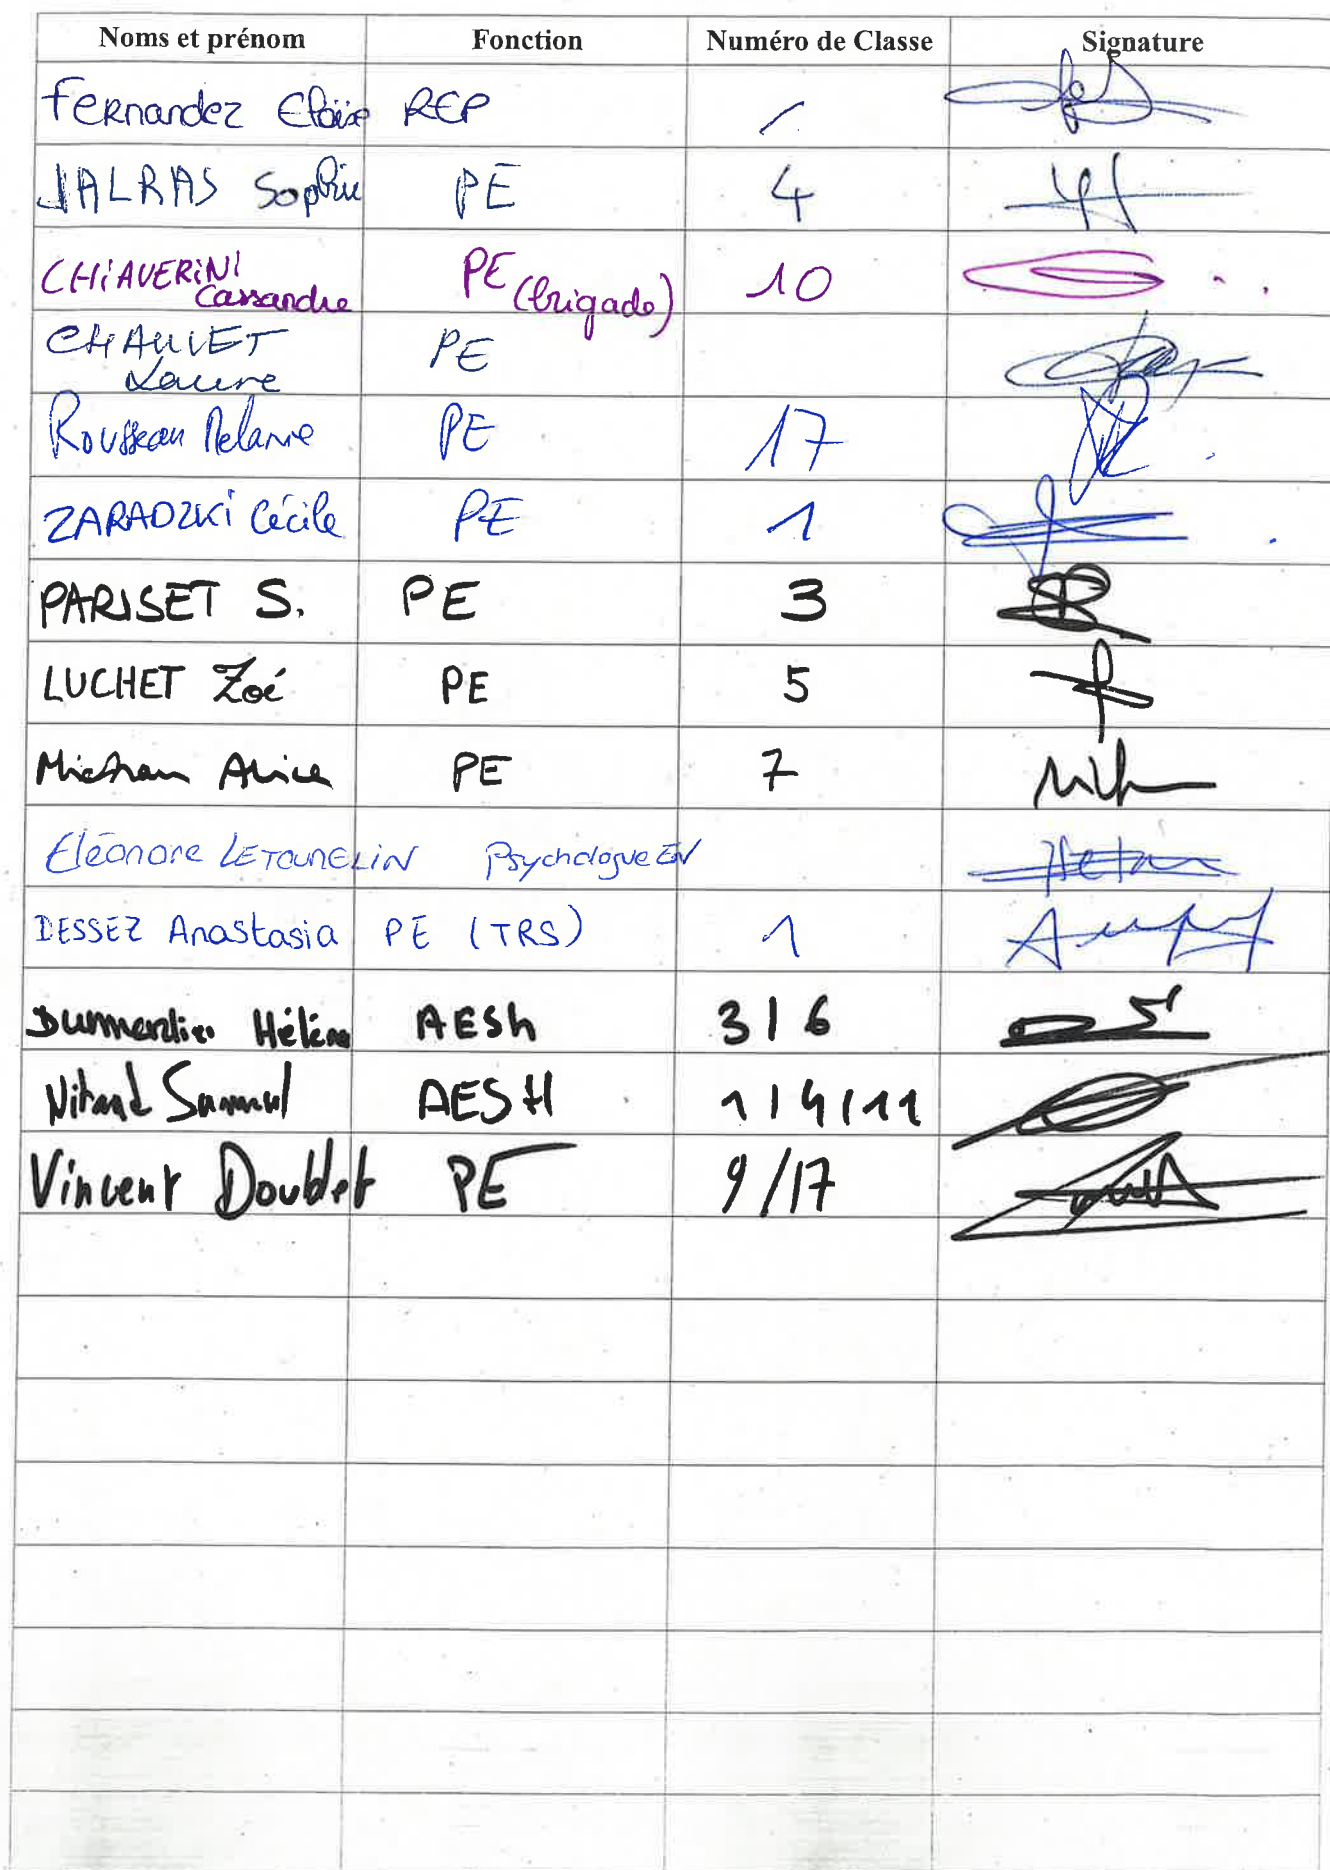 Noms et prénom Fonction Numéro de Classe Signature
Fernandez Eloïse REP /
JALRAS Sophie PE 4
CHIAVERINI PE (brigade) 10
Cassandre
CHAUVET PE
Laure
Rousseau Melanie PE 17
ZARADZKI Cécile PE 1
PARISET S. PE 3
LUCHET Zoé PE 5
Alice PE 7
Eléonore LETOUNELIN Psychologue EN
DESSEZ Anastasia PE (TRS) 1
Hélène AESh 3 / 6
Samuel AESH 1 / 4 / 11
Vincent Doublet PE 9 / 17